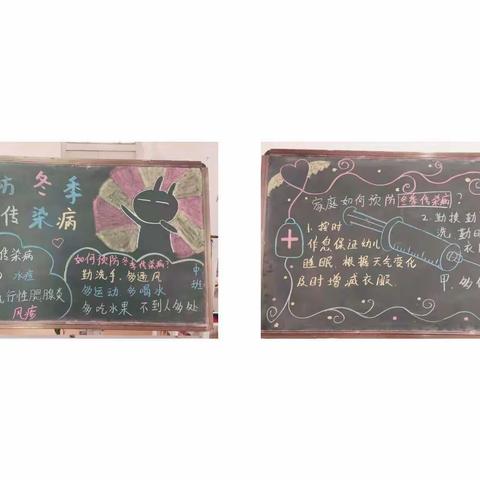 防冬季
传染病
传染病
水痘
流行性腮腺炎
风疹
如何预防冬季传染病?
勤洗手、多通风
多运动 多喝水
多吃水果 不到人多处
中
班
家庭如何预防冬季传染病?
1. 按时
作息保证幼儿
睡眠.根据天气变化
及时增减衣服.
2. 勤换勤
洗 勤
衣